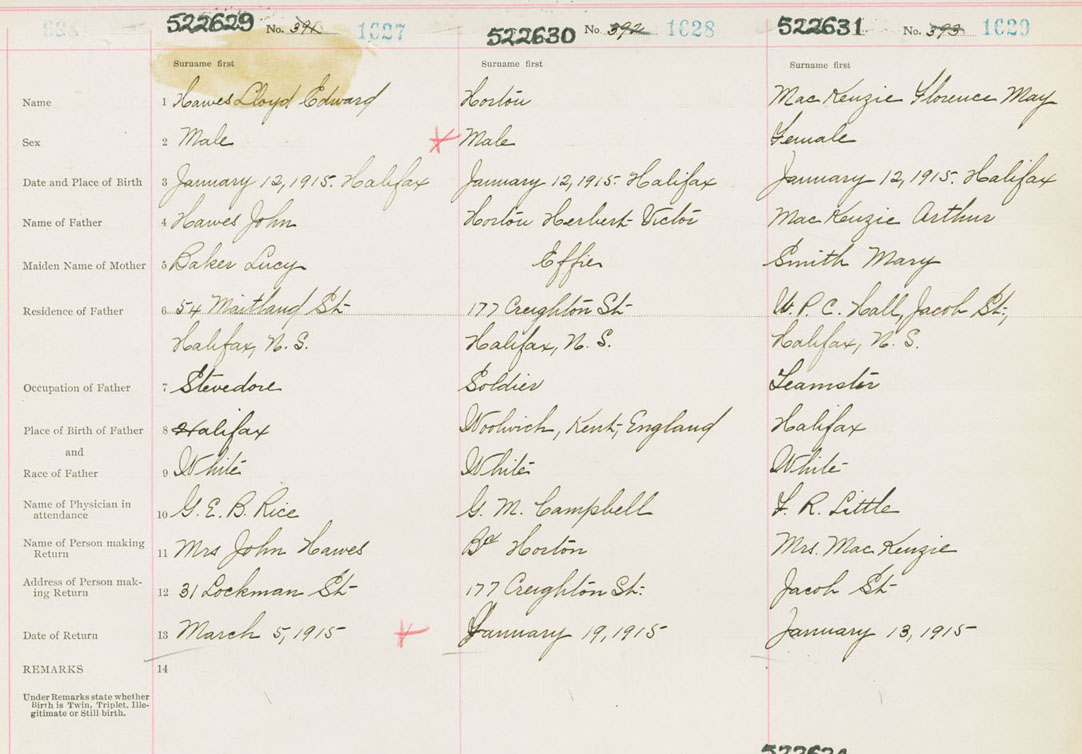 522629 No. 391 1627 522630 No. 392 1628 522631 No. 393 1629
Surname first Surname first Surname first
Name 1 Hawes Lloyd Edward Horton Mac Kenzie Florence May
Sex 2 Male Male Female
Date and Place of Birth 3 January 12, 1915. Halifax January 12, 1915. Halifax January 12, 1915. Halifax
Name of Father 4 Hawes John Horton Herbert Victor Mac Kenzie Arthur
Maiden Name of Mother 5 Baker Lucy Effie Smith Mary
Residence of Father 6 54 Maitland St 177 Creighton St W. P. C. Hall, Jacob St.,
Halifax, N. S. Halifax, N. S. Halifax, N. S.
Occupation of Father 7 Stevedore Soldier Teamster
Place of Birth of Father 8 Halifax Woolwich, Kent, England Halifax
and
Race of Father 9 White White White
Name of Physician in
attendance 10 G. E. B. Rice G. M. Campbell F. R. Little
Name of Person making
Return 11 Mrs John Hawes Horton Mrs. Mac Kenzie
Address of Person mak-
ing Return 12 31 Lockman St 177 Creighton St. Jacob St
Date of Return 13 March 5, 1915 January 19, 1915 January 13, 1915
REMARKS 14
Under Remarks state whether
Birth is Twin, Triplet, Ille-
gitimate or Still birth.